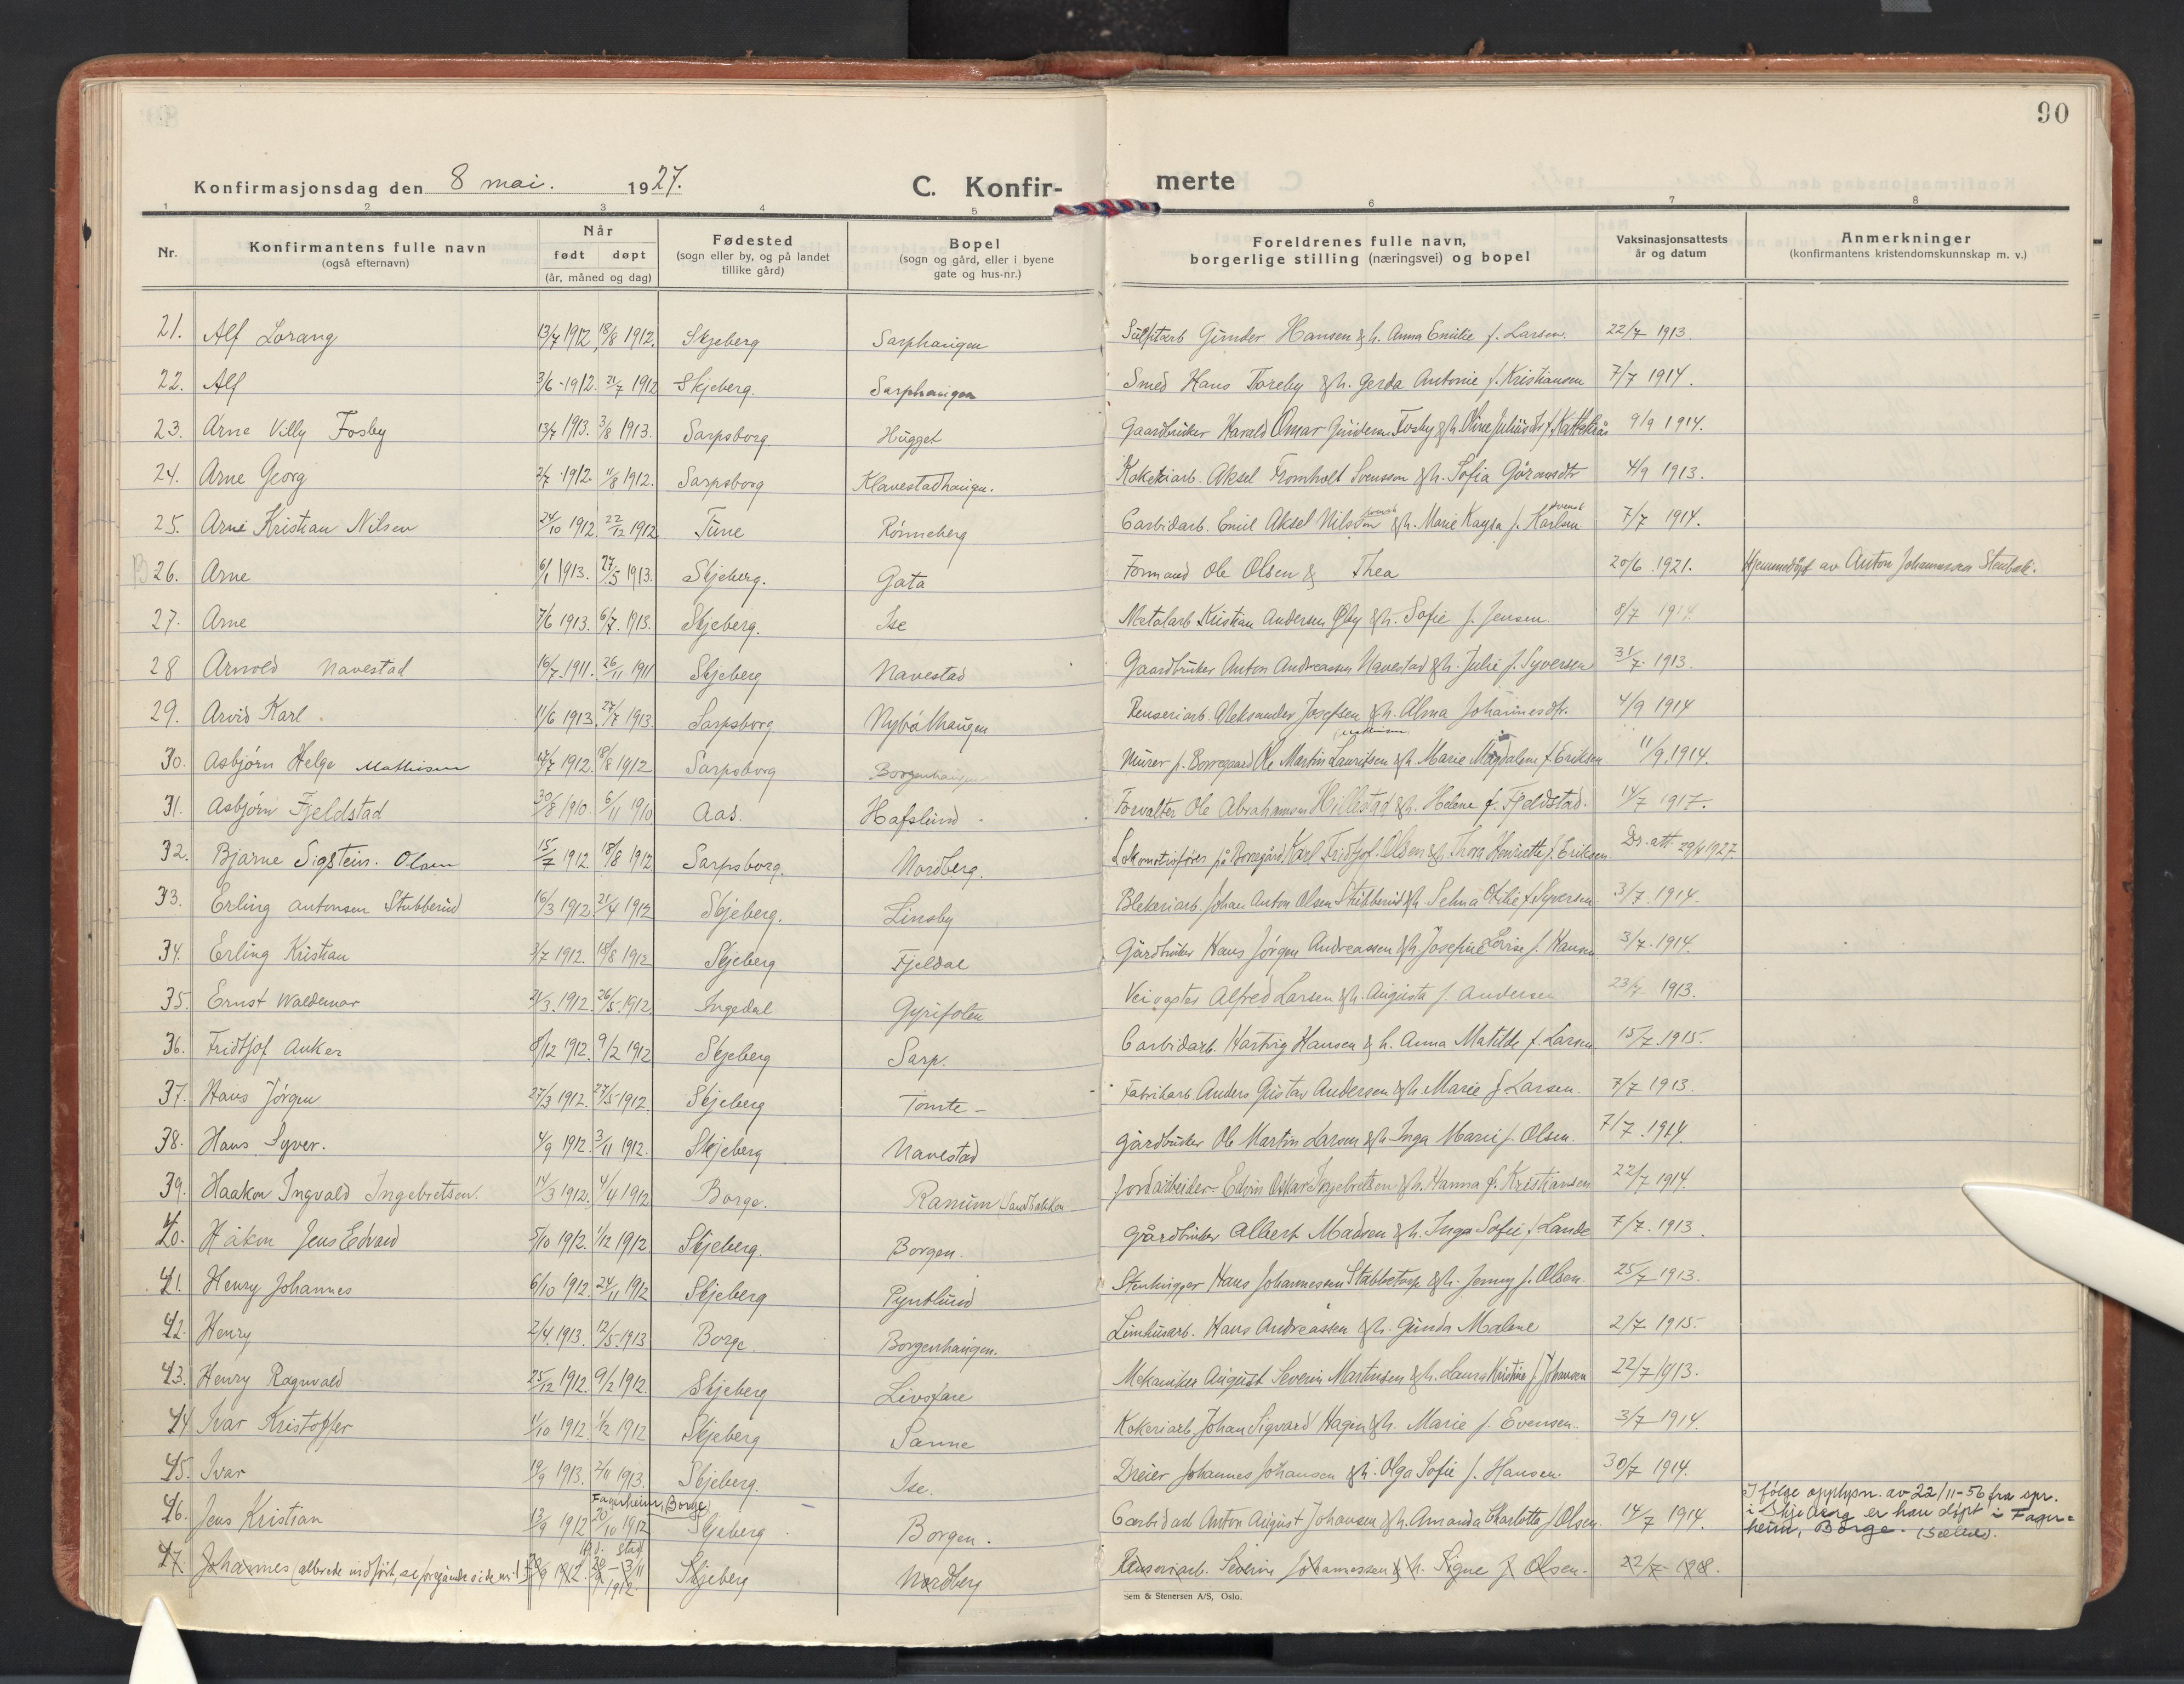 90
Konfirmasjonsdag den 8 mai. 1927. C. Konfir- merte
1 2 3 4 5 6 7 8
Nr. Konfirmantens fulle navn (også efternavn) Når født døpt (år, måned og dag) Fødested (sogn eller by, og på landet tillike gård) Bopel (sogn og gård, eller i byene gate og hus-nr.) Foreldrenes fulle navn, borgerlige stilling (næringsvei) og bopel Vaksinasjonsattests år og datum Anmerkninger (konfirmantens kristendomskunnskap m. v.)
21. Alf Lorang 13/7 1912 18/8 1912. Skjeberg Sarphaugen Sulfitarb Gunder Hansen & h. Anna Emilie f. Larsen. 22/7 1913.
22. Alf 3/6 1912. 21/7 1912 Skjeberg. Sarphaugen Smed Hans Toreby & h. Gerda Antonie f. Kristiansen 7/7 1914.
23. Arne Villy Fosby 13/7 1913. 3/8 1913. Sarpsborg Hugget Gaardbruker Harald Omar Gundersen Fosby & h. Oline f. 9/9 1914.
24. Arne Georg 2/7 1912 11/8 1912. Sarpsborg Klavestadhaugen. Kokeriarb. Aksel Fromholt Svensson & h. Sofia Göransdtr 4/9 1913.
25. Arne Kristian Nilsen 24/10 1912 22/12 1912 Tune Rønneberg Carbidarb. Emil Aksel Nilsson svensk & h. Marie Kaysa f. Karlson svensk 7/7 1914.
26. Arne 6/1 1913. 27/5 1913. Skjeberg. Gata Formand Ole Olsen & Thea 20/6 1921. Hjemmedøpt av Anton Johannessen Stenbek.
27. Arne 7/6 1913. 6/7 1913. Skjeberg. Ise Metalarb Kristian Andersen Øby & h. Sofie f. Jensen. 8/7 1914.
28 Arnold Navestad 16/7 1911. 26/11 1911 Skjeberg Navestad Gaardbruker Anton Andreassen Navestad & h. Julie f. Syversen 31/7 1913.
29. Arvid Karl. 11/6 1913. 27/7 1913. Sarpsborg Nybålhaugen Renseriarb. Aleksander Josefsen & h. Alma Johannesdtr. 4/9 1914
30. Asbjørn Helge Mathisen 14/7 1912. 18/8 1912 Sarpsborg Borgenhaugen Murer p. Borregaard Ole Martin Lauritsen Mathisen & h. Marie Magdalene f. Eriksen 11/9. 1914.
31. Asbjørn Fjeldstad 30/8 1910. 6/11 1910 Aas. Hafslund. Forvalter Ole Abrahamsen Hillestad & h. Helene f. Fjeldstad. 14/7 1917.
32. Bjarne Sigstein. Olsen 15/7 1912. 18/8 1912 Sarpsborg. Nordberg. Lokomotivfører på Borregård Karl Fridtjof Olsen & h. Thora Henriette f. Eriksen Dr. att 29/4 1927
33. Erling Antonsen Stubberud 16/3 1912 21/4 1912 Skjeberg. Linsby Blekeriarb. Johan Anton Olsen Stubberud & h. Selma Otilie f. Syversen 3/7. 1914.
34. Erling Kristian 3/7 1912. 18/8 1912 Skjeberg Fjeldal Gårdbruker Hans Jørgen Andreassen & h. Josefine Lovise f. Hansen 3/7. 1914.
35. Ernst Waldemar 21/3. 1912. 26/5. 1912 Ingedal Gyrifolen Veivogter Alfred Larsen & h. Augusta f. Andersen 23/7 1913.
36. Fridtjof Anker 8/12 1912. 9/2 1912 Skjeberg Sarp. Carbidarb. Hartvig Hansen & h. Anna Matilde f. Larsen 15/7. 1915.
37. Hans Jørgen 27/3 1912. 27/5 1912. Skjeberg Tomte - Fabrikarb. Anders Gustav Andersen & h. Marie f. Larsen. 7/7 1913.
38. Hans Syver. 4/9 1912. 3/11 1912. Skjeberg Navestad Gårdbruker Ole Martin Larsen & h. Inga Marie f. Olsen. 7/7. 1914.
39. Haakon Ingvald Ingebretsen. 14/3 1912. 4/4 1912 Borge. Ranum (Sandbakken Jordarbeider Edvin Oskar Ingebretsen & h. Hanna f. Kristiansen 22/7 1914.
40. Håkon Jens Edvard 5/10 1912. 1/12 1912 Skjeberg. Borgen. Gårdbruker Albert Madsen & h. Inga Sofie f. Lande 7/7. 1913.
41. Henry Johannes 6/10 1912. 24/11 1912 Skjeberg Pyntlund Stenhugger Hans Johannessen Stabbetorp & h. Jenny f. Olsen. 25/7 1913.
42. Henry 2/4. 1913. 12/5. 1913 Borge. Borgenhaugen. Limhusarb. Hans Andreassen & h. Gunda Malene 2/7 1915.
43. Henry Ragnvald 25/12 1912. 9/2 1912. Skjeberg Livsfare Mekaniker August Severin Martinsen & h. Laura Kristine f. Johansen 22/7 1913.
44 Ivar Kristoffer 1/10 1912 1/12 1912 Skjeberg Sanne Kokeriarb. Johan Sigvard Hagen & h. Marie f. Evensen. 3/7 1914.
45. Ivar 19/9 1913. 2/11 1913. Skjeberg. Ise. Dreier Johannes Johansen & h. Olga Sofie f. Hansen. 30/7 1914.
46. Jens Kristian 13/9 1912 20/10 1912 Fagerheim, (Borge) Skjeberg. Borgen. Carbidarb Anton August Johansen & h. Amanda Charlotte f. Olsen. 14/7 1914. I følge opplysn. av 22/11-56 fra spr.
i Skjeberg er han døpt i Fager=
heim, Borge.
47. Johannes (allerede indført, se foregående side nr. 1912. 3/11 1912. Skjeberg Nordberg Renseriarb. Severin Johannessen & h. Signe f. Olsen. 22/7 1918.
Sem & Stenersen A/S, Oslo.